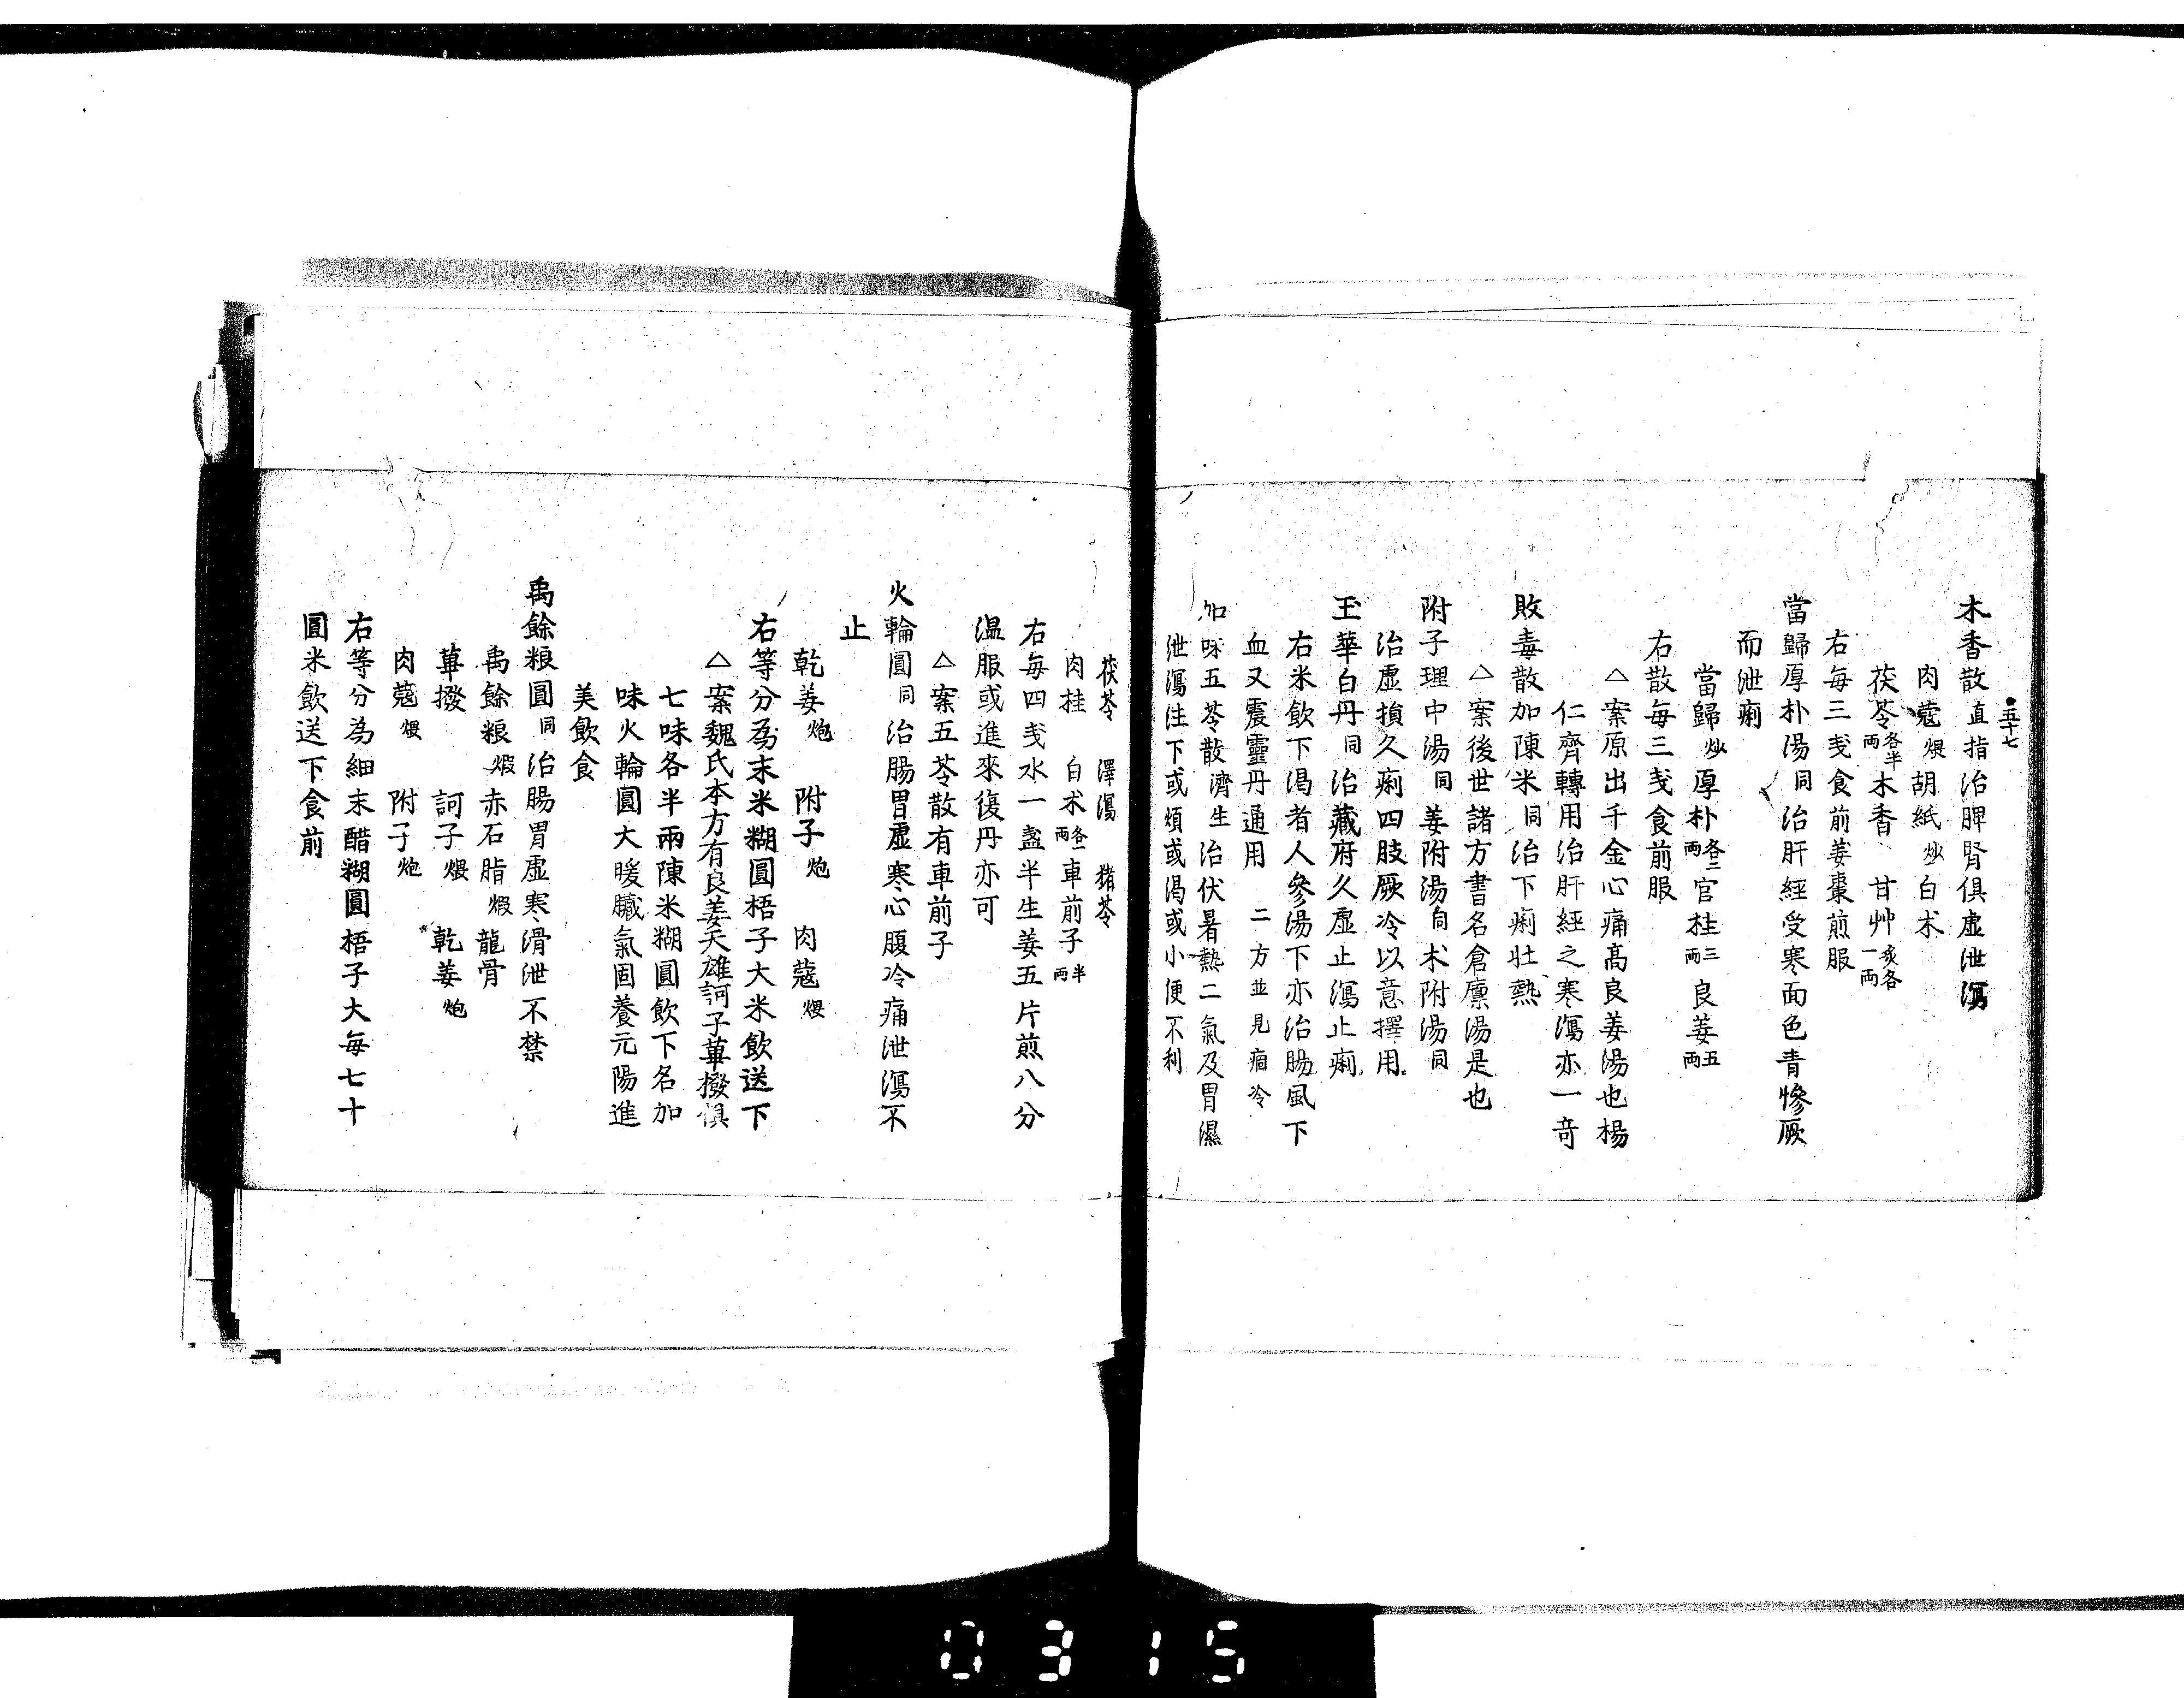 五十七
木香散直指治脾腎俱虚泄瀉
肉蔻煨胡紙炒白朮
茯苓各半両木香甘艸炙各一両
右毎三戔食前姜棗煎服
當歸厚朴湯同治肝經受寒面色青慘厥
而泄痢
當歸炒厚朴各二両官桂三両良姜五両
右散毎三戔食前服
△案原出千金心痛髙良姜湯也楊
仁齊轉用治肝經之寒瀉亦一竒
敗毒散加陳米同治下痢壮熱
△案後世諸方書名倉廪湯是也
附子理中湯同姜附湯同朮附湯同
治虚損久痢四肢厥冷以意擇用
玉華白丹同治藏府久虚止瀉止痢
右米飲下渇者人參湯下亦治腸風下
血又震靈丹通用二方並見痼冷
加味五苓散濟生治伏暑熱二氣及胃濕
泄瀉注下或煩或渇或小便不利
茯苓 澤瀉 猪苓
肉桂 白朮各一両車前子半両
右毎四戔水一盞半生姜五片煎八分
温服或進來復丹亦可
△案五苓散有車前子
火輪圓同治腸胃虚寒心腹冷痛泄瀉不
止
乾姜炮 附子炮 肉蔻煨
右等分為末米糊圓梧子大米飲送下
△案魏氏本方有良姜天雄訶子蓽撥倶
七味各半兩陳米糊圓飲下名加
味火輪圓大暖臓氣固養元陽進
美飲食
禹餘粮圓同治腸胃虚寒滑泄不禁
禹餘粮煅赤石脂煅龍骨
蓽撥 訶子煨 乾姜炮
肉蔻煨 附子炮
右等分為細末醋糊圓梧子大毎七十
圓米飲送下食前
0315